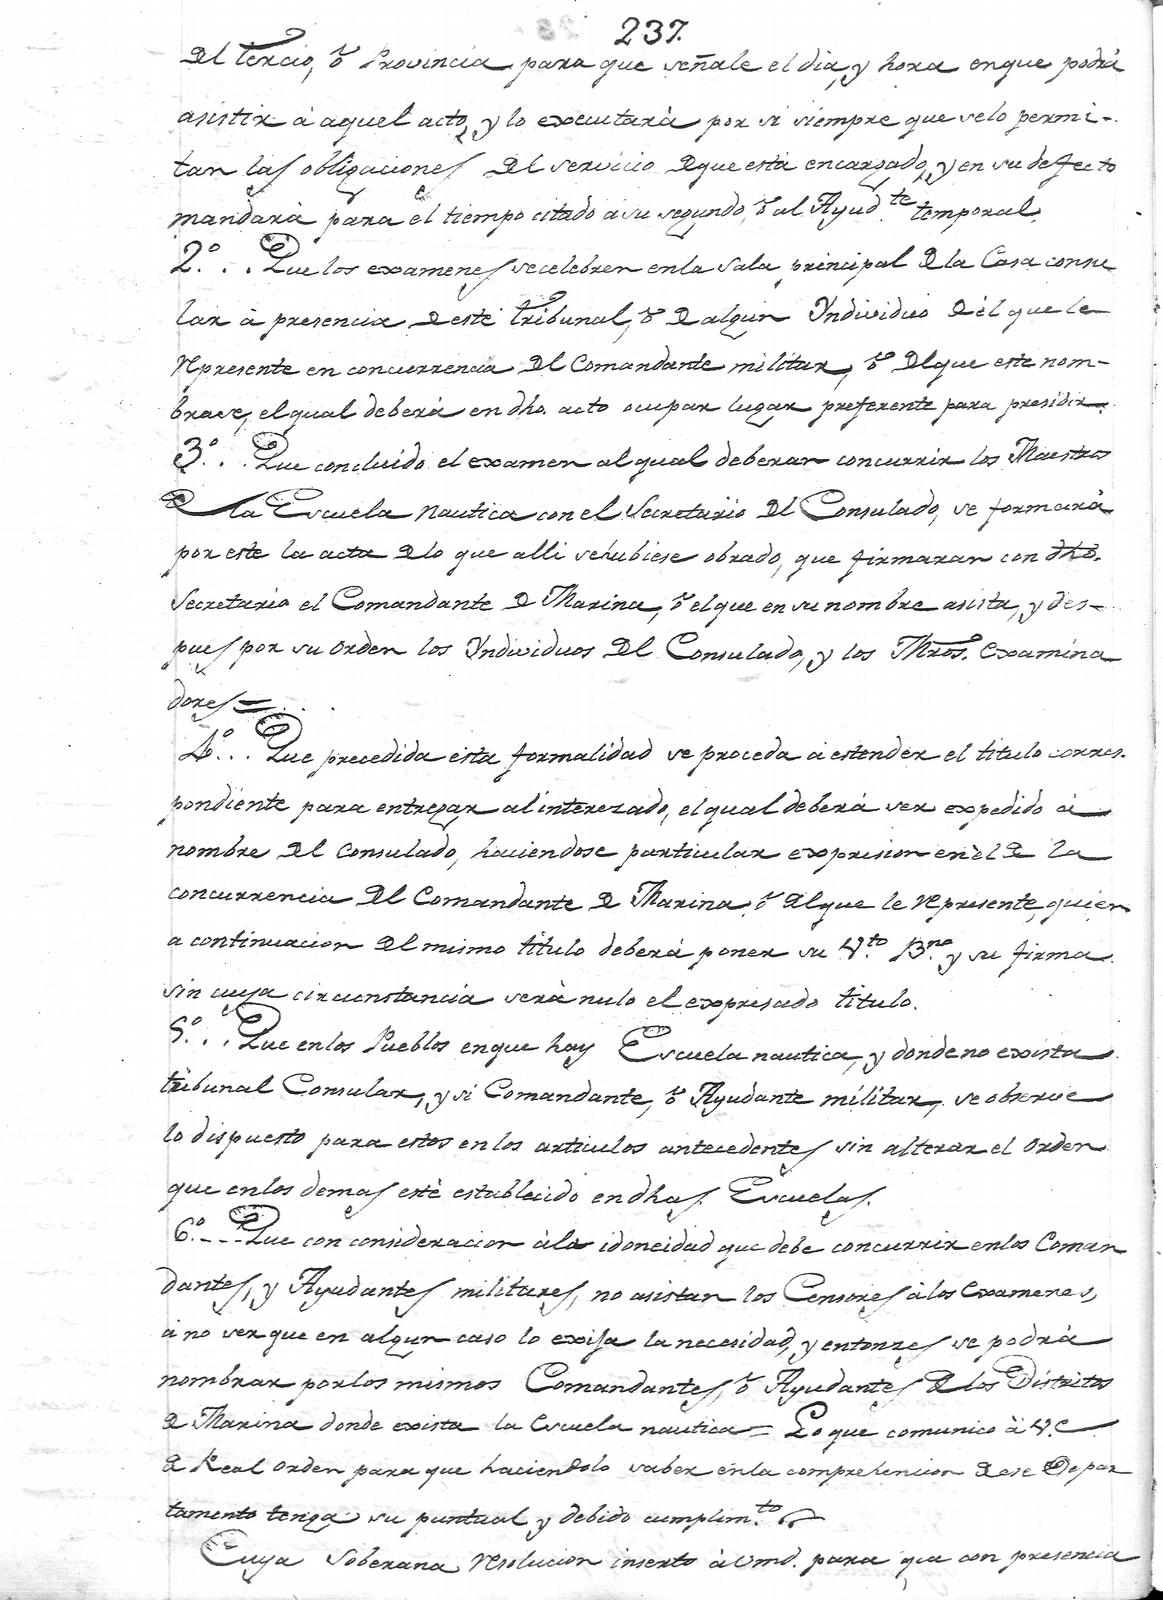 237.
Del tercio, ò Provincia para que señale el dia, y hora enque podrà
asistir à aquel acto, y lo executarà por si siempre que selo permi-
tan las obligaciones Del servicio Deque està encargado, y en su defecto
mandarà para el tiempo citado à su segundo, ò al Ayud.te temporal.
2.º.. Que los examenes secelebren enla sala principal De la Casa consu
lar à presencia Deeste tribunal, ò De algun Yndividuo De èl que le
represente en concurrencia Del Comandante militar, ò Delque este nom-
brase, el qual deberà en dho. acto ocupar lugar preferente para presidir.
3.º.. Que concluido el examen al qual deberan concurrir los Maestros
De la Escuela Nautica con el Secretario Del Consulado, se formarà
por este la acta Delo que alli sehubiese obrado, que firmaran con dho.
Secretario el Comandante De Marina, ò el que en su nombre asista, y des-
pues por su orden los Yndividuos Del Consulado, y los Mros. examina
dores=...
4.º... Que precedida esta formalidad se proceda à estender el titulo corres-
pondiente para entregar al interezado, el qual deberà ser expedido à
nombre Del Consulado, haciendose particular expresion en èl De la
concurrencia Del Comandante De Marina ò Delque le represente, quien
a continuacion Del mismo titulo deberà poner su V.to B.no y su firma
sin cuya circunstancia serà nulo el expresado titulo.
5.º.. Que enlos Pueblos enque hay Escuela nautica, y dondeno exista
tribunal Consular, y si Comandante, ò Ayudante militar, se observe
lo dispuesto para estos en los articulos antecedentes sin alterar el orden
que enlos demas estè establecido en dhas. Escuelas.
6.º--- Que con consideracion àla idoneidad que debe concurrir enlos Coman
dantes, y Ayudantes militares, no asistan los Censores àlos examenes,
à no ser que en algun caso lo exija la necesidad, y entonzes se podrà
nombrar porlos mismos Comandantes, ò Ayudantes De los Distritos
De Marina donde exista la escuela nautica= Lo que comunico à V.E
De Real orden para que haciendolo saber enla comprehencion De ese Depar
tamento tenga su puntual y debido cumplim.to
Cuya Soberana resolucion inserto à Vmd. para que con presencia